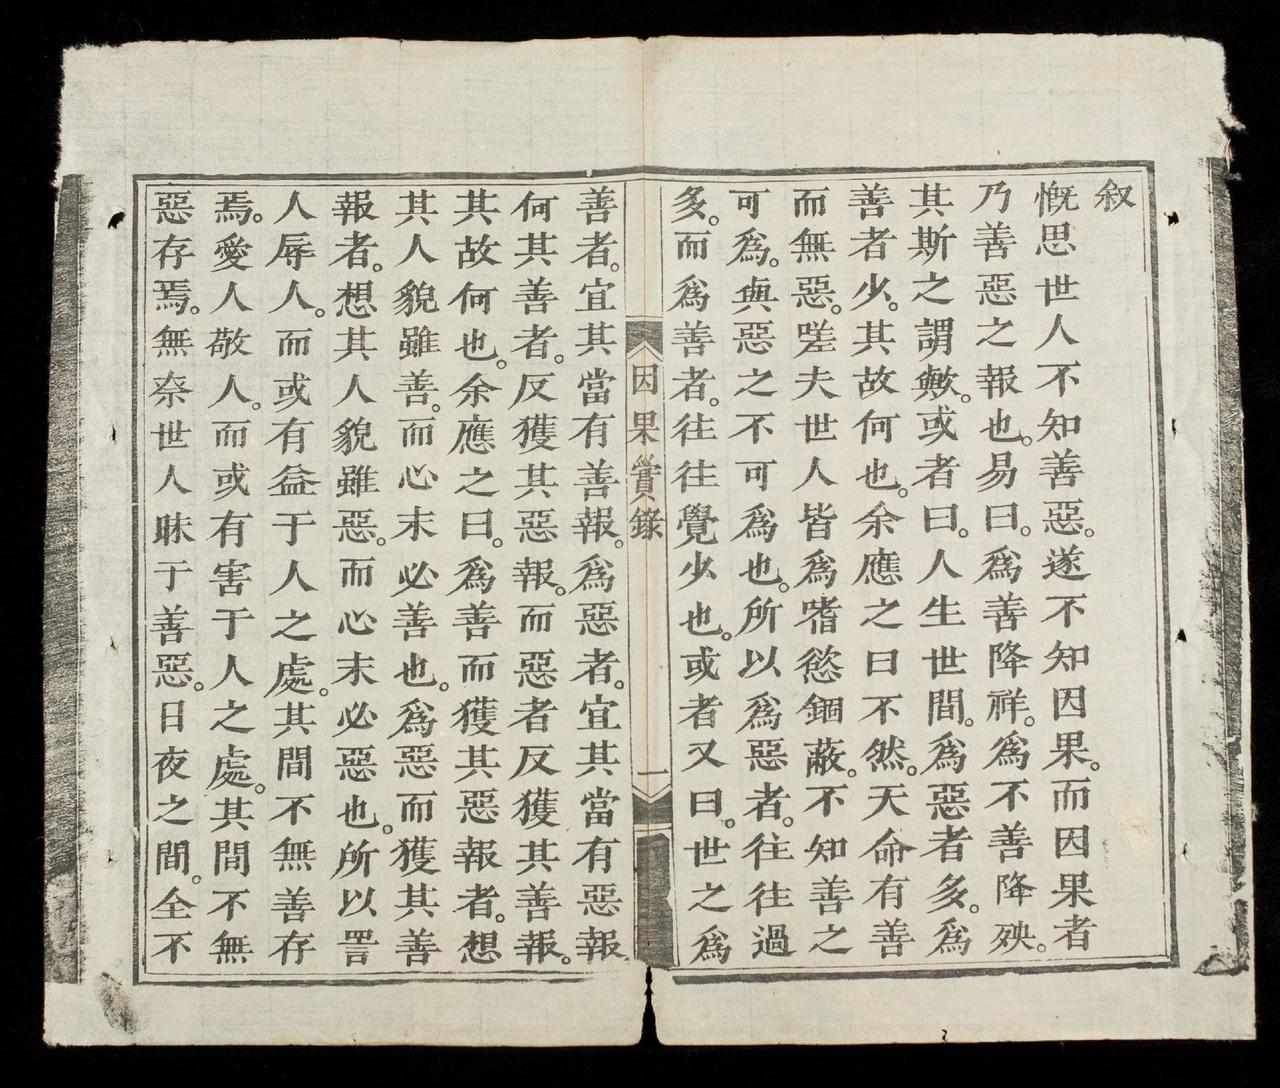 叙
慨思世人不知善惡。遂不知因果。而因果者
乃善惡之報也。易曰。爲善降祥。爲不善降殃。
其斯之謂歟。或者曰。人生世間。爲惡者多。爲
善者少。其故何也。余應之曰不然。天命有善
而無惡。嗟夫世人皆爲嗜慾錮蔽。不知善之
可爲。與惡之不可爲也。所以爲惡者。往往過
多。而爲善者。往往覺少也。或者又曰。世之爲
因果實錄
一
善者。宜其當有善報。爲惡者。宜其當有惡報。
何其善者。反獲其惡報。而惡者反獲其善報。
其故何也。余應之曰。爲善而獲其惡報者。想
其人貌雖善。而心未必善也。爲惡而獲其善
報者。想其人貌雖惡。而心未必惡也。所以詈
人辱人。而或有益于人之處。其間不無善存
焉。愛人敬人。而或有害于人之處。其間不無
惡存焉。無柰世人昧于善惡。日夜之間。全不